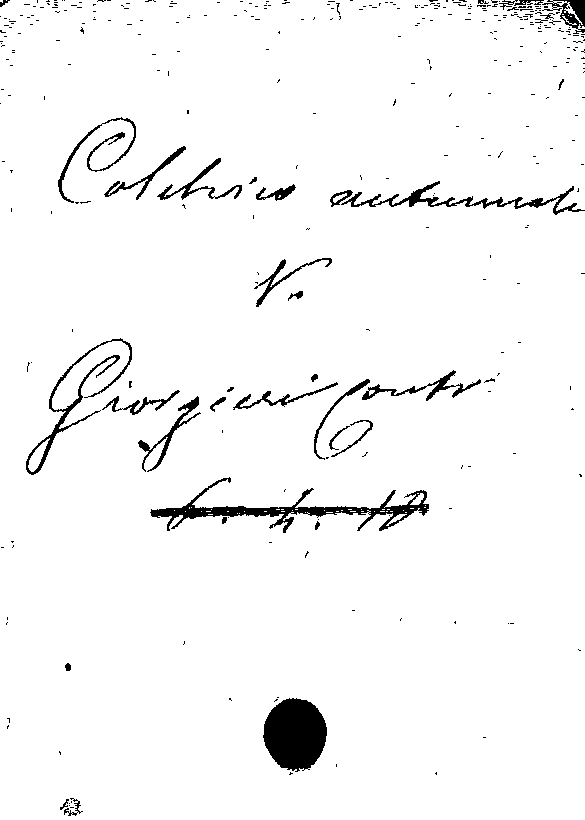 Colchico autunnale
V.
Giorgieri Contr
6. 4. 18